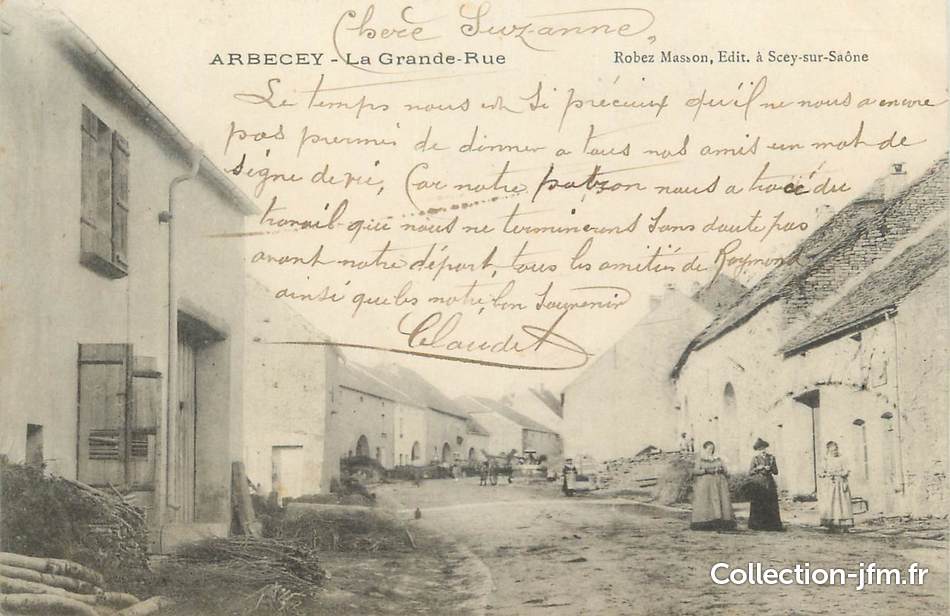 Chère Suzanne,
ARBECEY - La Grande-Rue
Robez Masson, Edit. à Scey-sur-Saône
Le temps nous est si précieux qu'il ne nous a encore
pas permis de donner a tous nos amis un mot de
signe de vie, Car notre patron nous a tracé du
travail que nous ne terminerons sans doute pas
avant notre départ, tous les amitiés de Raymond
ainsi que les notre, bon Souvenir
Claude
Collection-jfm.fr